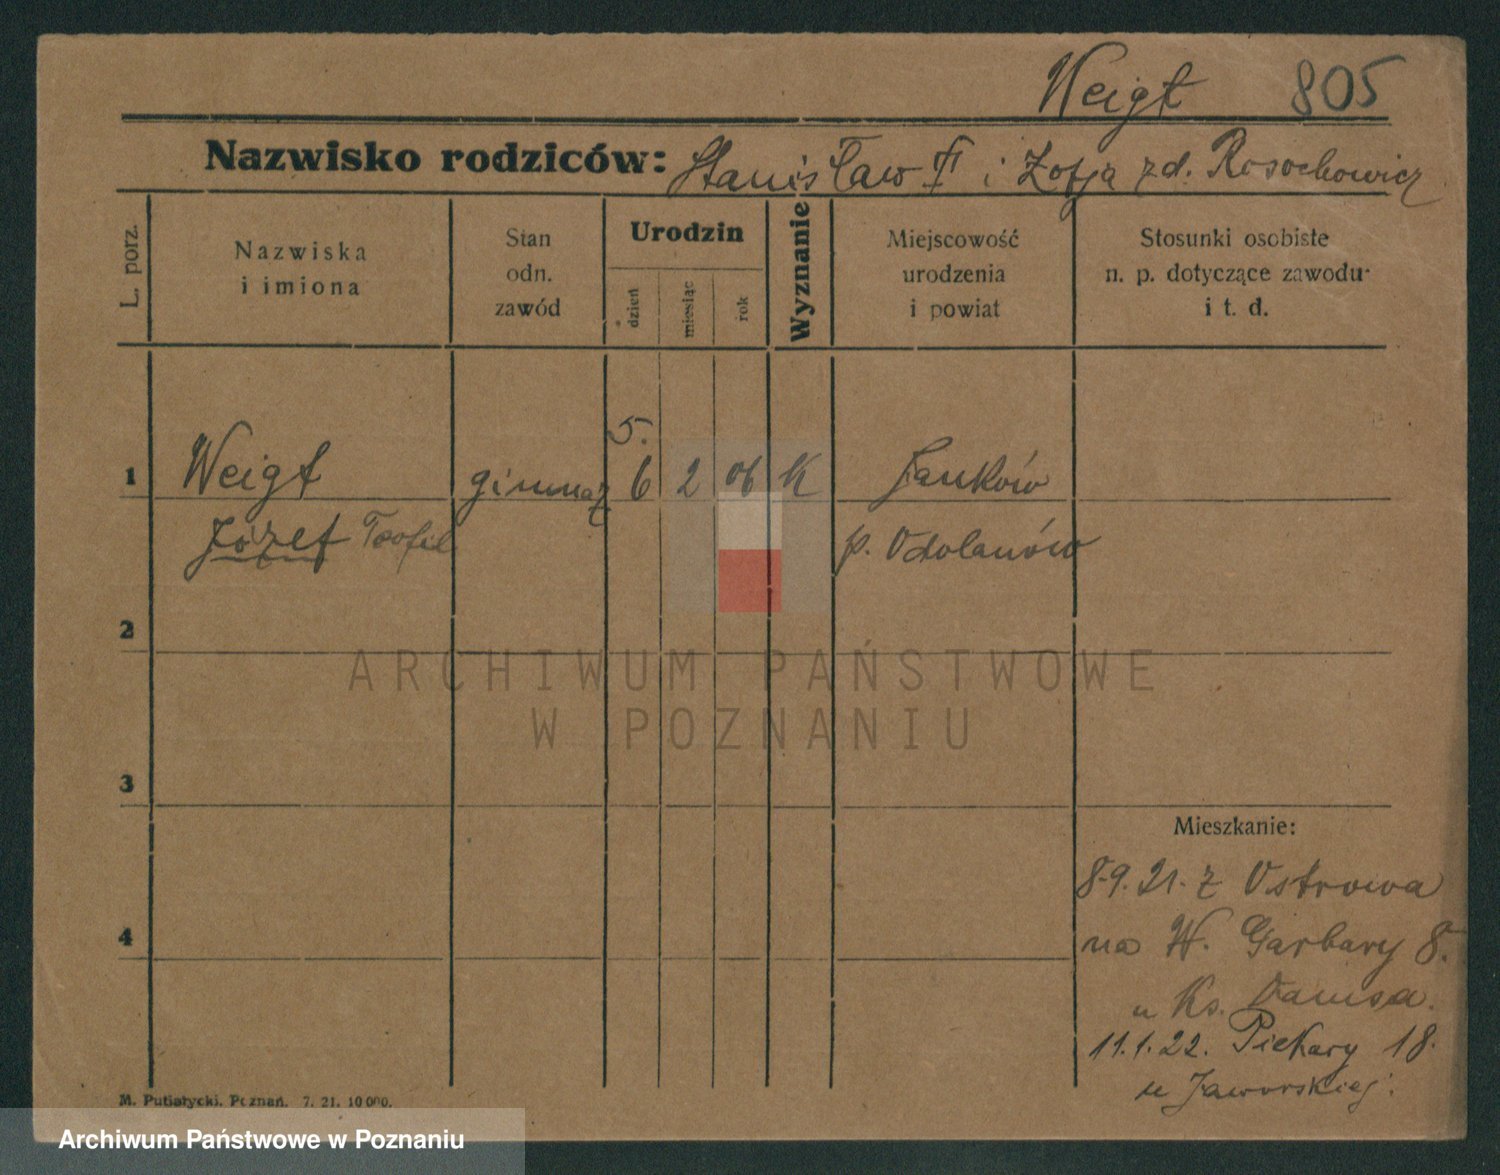 Weigt 805
Nazwisko rodziców: Stanisław † i Zofja zd. Rosochowicz
L. porz.
Nazwiska
i imiona
Stan
odn.
zawód
Urodzin
dzień
miesiąc
rok
Wyznanie
Miejscowość
urodzenia
i powiat
Stosunki osobiste
n. p. dotyczące zawodu
i t. d.
5.
1 Weigt gimnaz 6 2 06 K Janków
Józef Teofil p. Odolanów
2
3
4
Mieszkanie:
8.9.21. z Ostrowa
na W. Garbary 8.
u Ks. Damsa.
11.1.22. Piekary 18.
u Jaworskiej.
M. Putiatycki, Poznań. 7. 21. 10 000.
ARCHIWUM PAŃSTWOWE
W POZNANIU
Archiwum Państwowe w Poznaniu